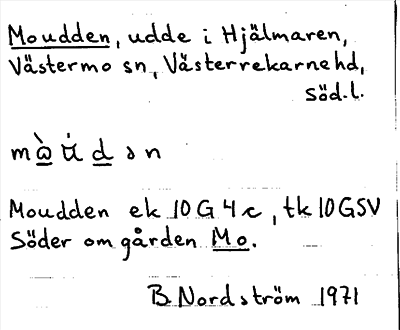 Moudden, udde i Hjälmaren,
Västermo sn, Västerrekarne hd,
Söd.l.
Moudden ek 10G4c, tk10GSV
Söder om gården Mo.
B Nordström 1971